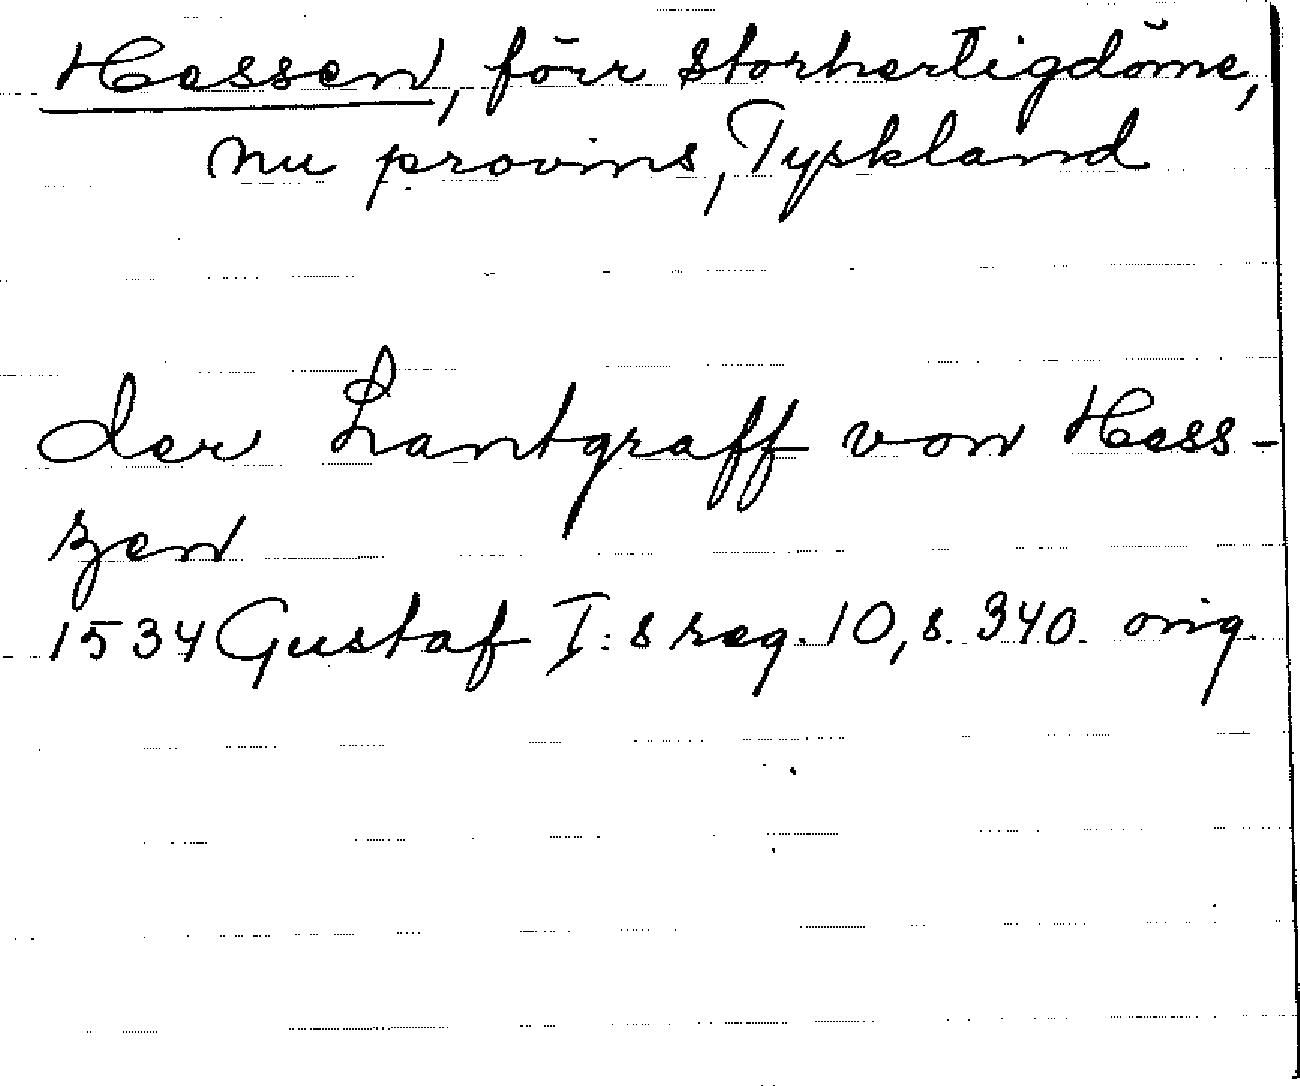 Hessen, förr storhertigdöme,
nu provins, Tyskland
der Lantgraff von Hess-
zen
1534 Gustaf I:s reg. 10, s. 340. orig